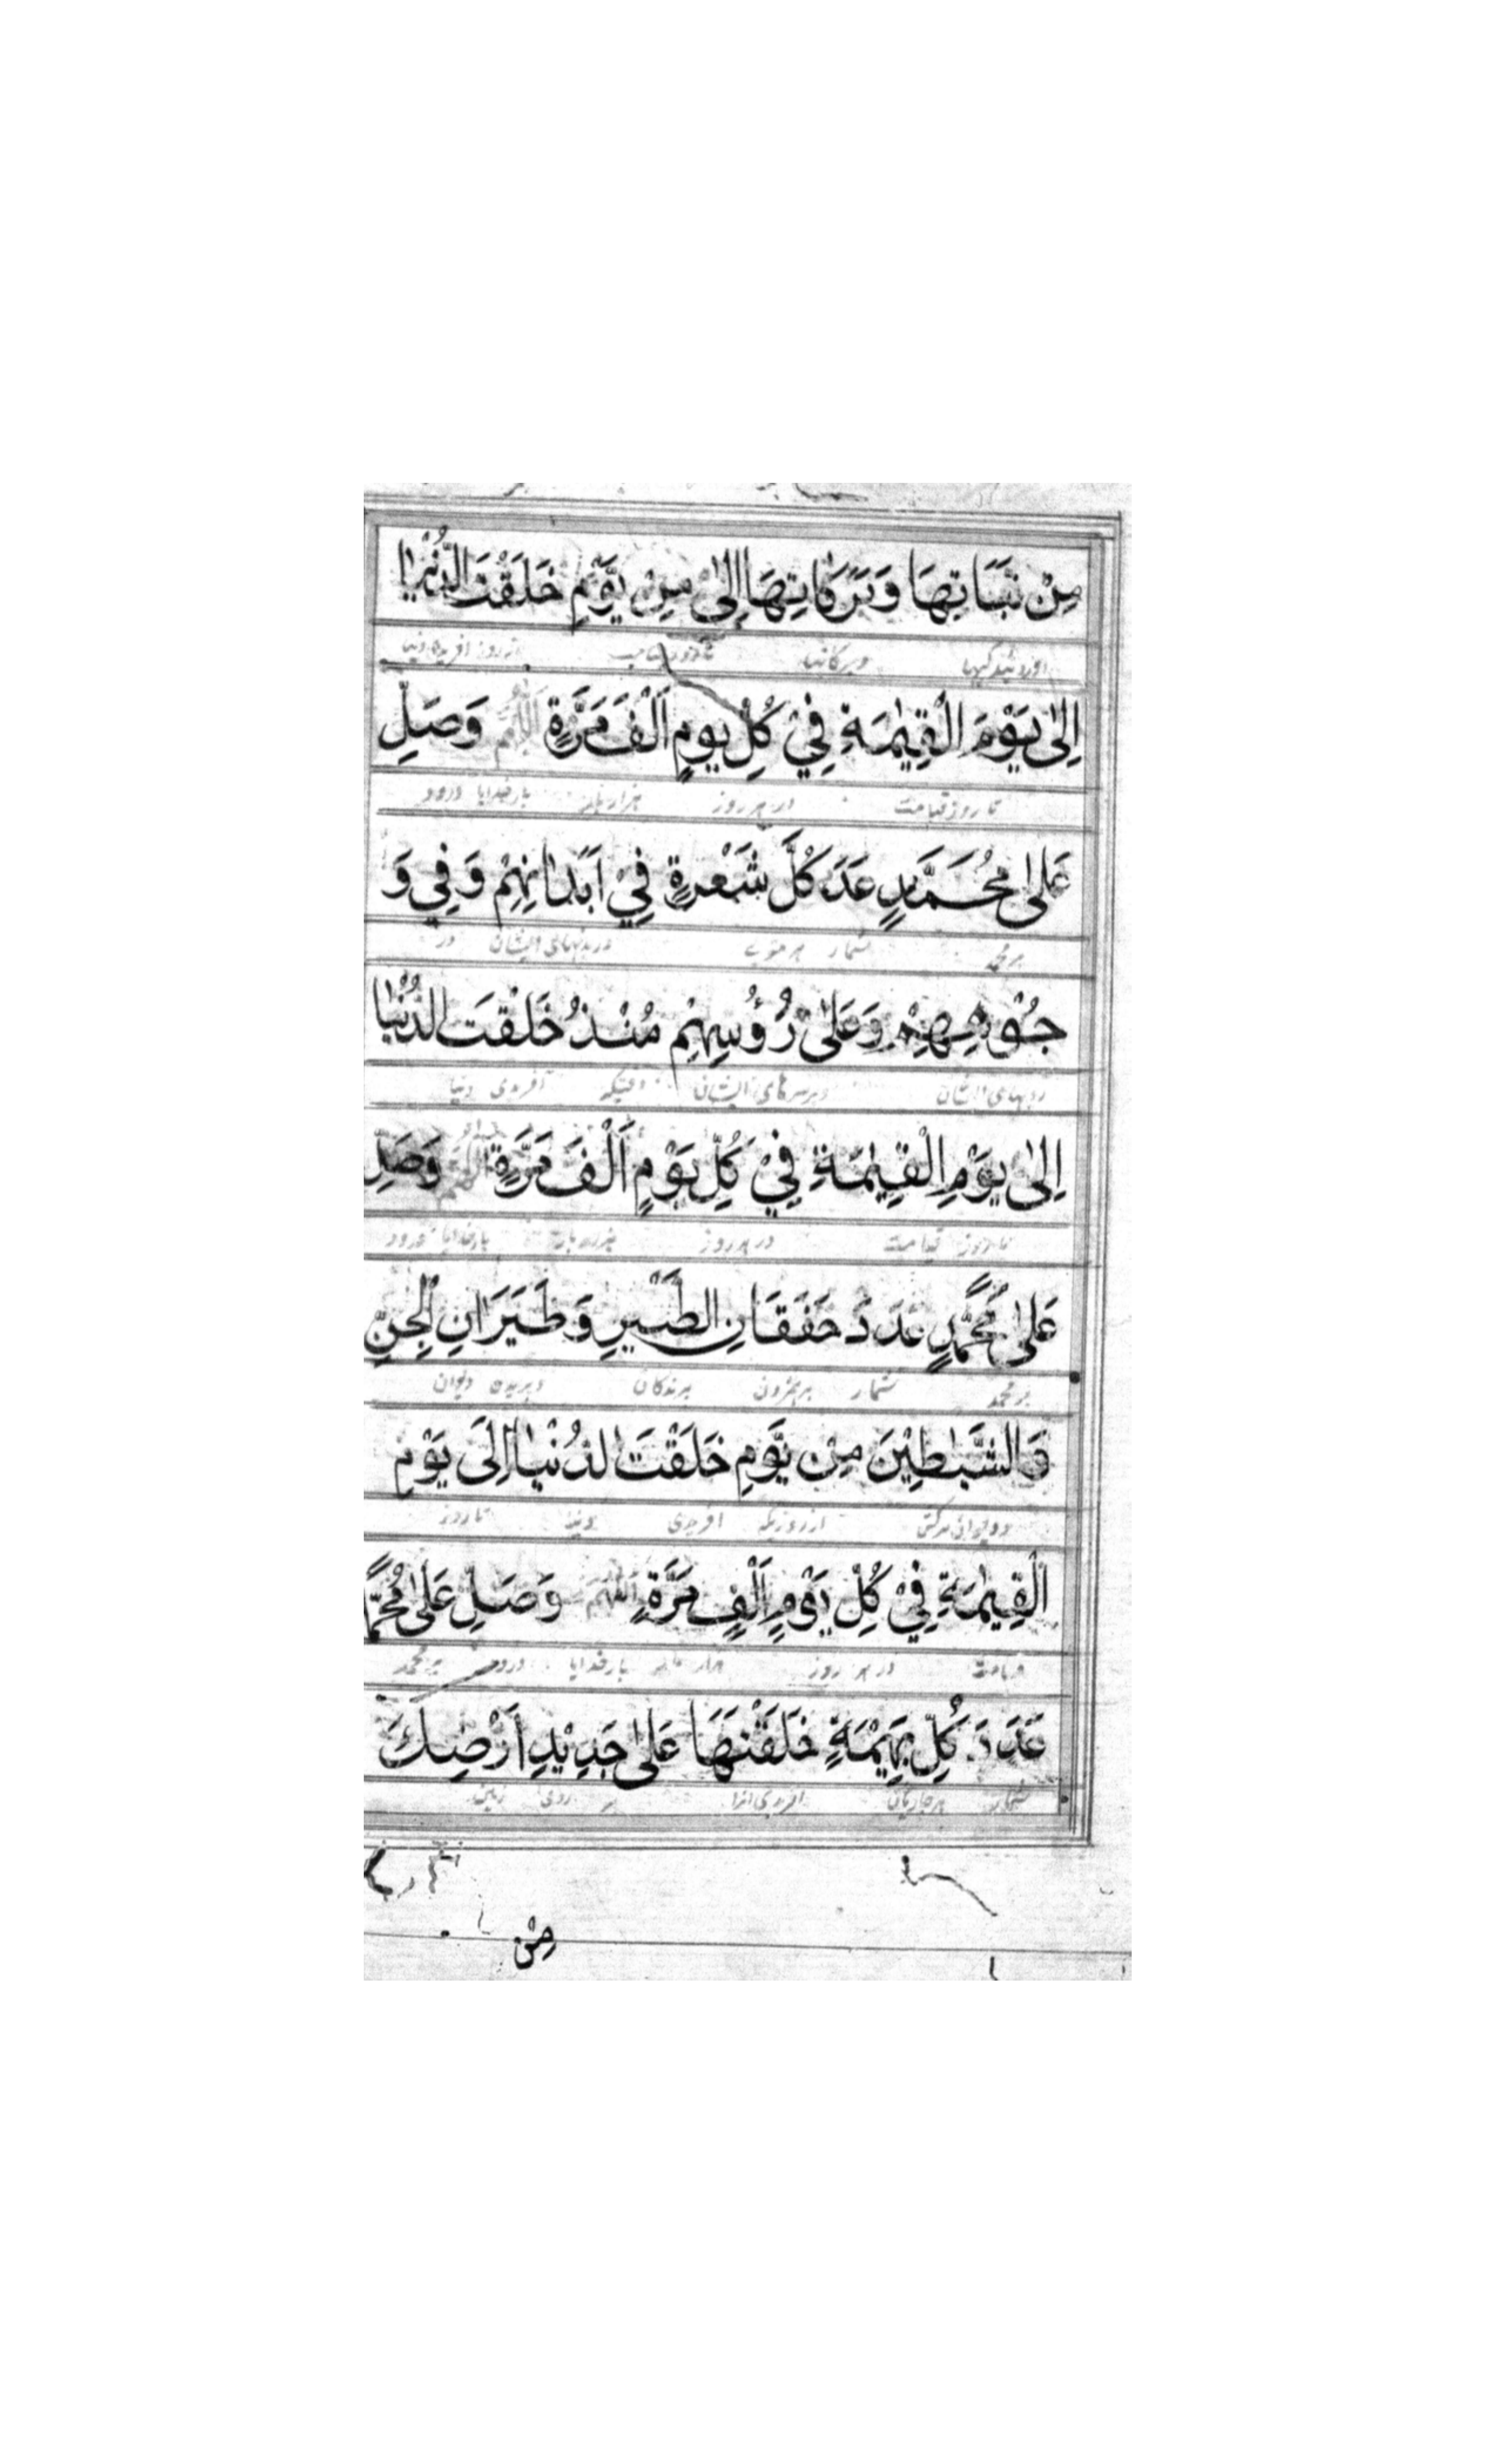 مِنْ نَبَاتِهَا وَبَرَكَاتِهَا اِلىٰ مِنْ يَوْمِ خَلَقْتَ الدُّنْيَا
وبرکاتها روز افریدی دنیا
اِلىٰ يَوْمَ الْقِيٰمَةِ فِيْ كُلِّ يومٍ اَلْفَ مَرَّةٍ اللّٰهُمَّ وَصَلِّ
تا روز قیامت در هر روز هزار بار بار خدایا درود
عَلىٰ مُحَمَّدٍ عَدَ كُلَّ شَعْرَةٍ فِيْ اَبْدَانِهِمْ وَفِي وُ
بر محمد شمار هر موی در بدنهای ایشان در
جُوْهِهِمْ وَعَلىٰ رُؤُسِهِمْ مُنْذُ خَلَقْتَ الدُّنْيَا
رویهای ایشان وبر سرهای ایشان وقتیکه آفریدی دنیا
اِلىٰ يَوْمِ الْقِيٰمَةِ فِيْ كُلِّ يَوْمٍ اَلْفَ مَرَّةٍ اللّٰهُمَّ وَصَلِّ
تا روز قیامت در هر روز هزار بار بار خدایا درود
عَلىٰ مُحَمَّدٍ عَدَدَ خَفَقَانِ الطَّيْرِ وَطَيَرَانِ الْجِنِّ
بر محمد شمار پرندگان وپریدن دیوان
وَالشَّيٰطِيْنَ مِنْ يَوْمِ خَلَقْتَ الدُنْيَا اِلَى يَوْمِ
ودیوان سرکش از روزیکه افریدی دنیا تا روز
الْقِيٰمَةِ فِيْ كُلِّ يَوْمٍ اَلْفَ مَرَّةٍ اللّٰهُمَّ وَصَلِّ عَلىٰ مُحَمَّدٍ
قیامت در هر روز هزار بار بار خدایا درود بر محمد
عَدَدَ كُلِّ بَهِيْمَةٍ خَلَقْتَهَا عَلىٰ جَدِيْدِ اَرْضِكَ
شمار هر چارپایان افریدی انرا بر روی زمین
مِنْ